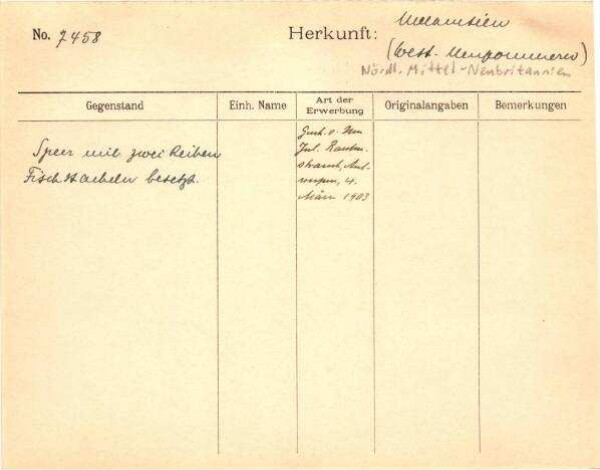 No. 7458
Herkunft: Melanesien
(West-Neupommern)
Nördl. Mittel-Neubritannien
Gegenstand
Einh. Name
Art der
Erwerbung
Originalangaben
Bemerkungen
Speer mit zwei Reihen
Fischstacheln besetzt.
Gesch. v. Hrn
Jul. Rauten-
strauch, Ant-
werpen, 4.
März 1903